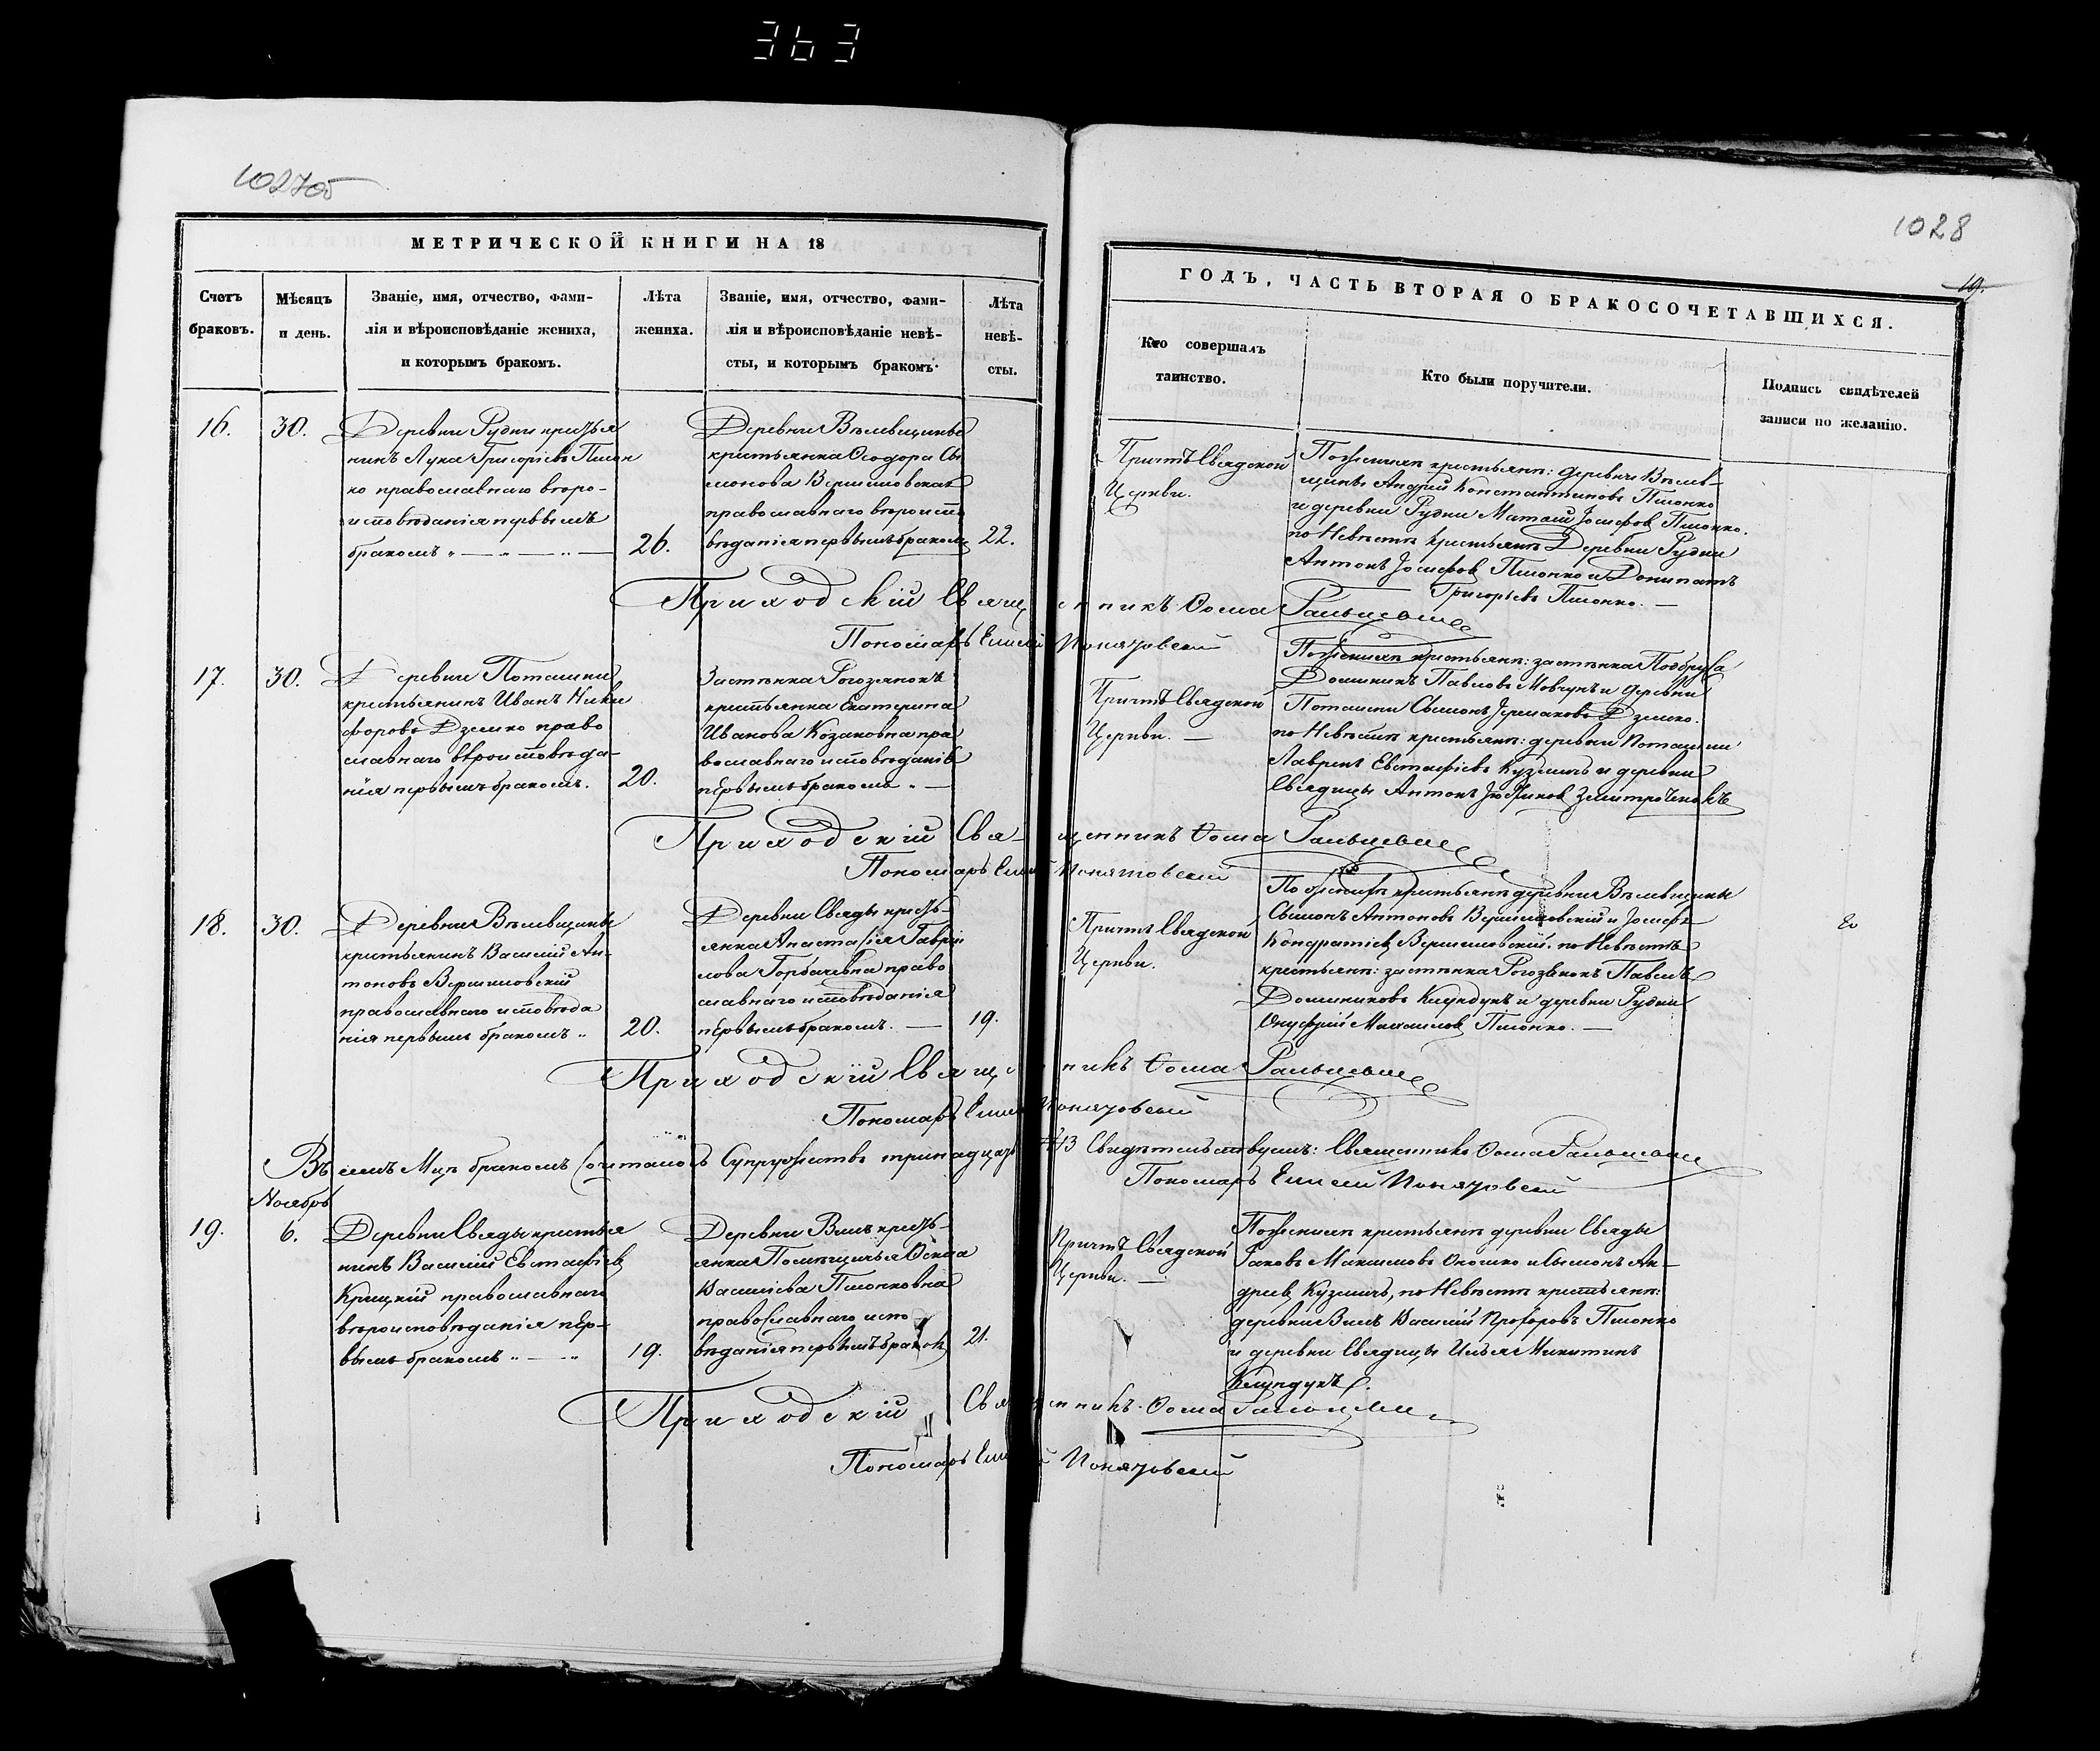 363
102705
1028
19.
МЕТРИЧЕСКОЙ КНИГИ НА 18
ГОДЪ, ЧАСТЬ ВТОРАЯ О БРАКОСОЧЕТАВШИХСЯ.
Счетъ
браковъ.
Мѣсяцъ
и день.
Званіе, имя, отчество, фами-
лія и вѣроисповѣданіе жениха,
и которымъ бракомъ.
Лѣта
жениха.
Званіе, имя, отчество, фами-
лія и вѣроисповѣданіе невѣ-
сты, и которымъ бракомъ.
Лѣта
невѣ-
сты.
Кто совершалъ
таинство.
Кто были поручители.
Подпись свидѣтелей
записи по желанію.
16.
30.
Деревни Рудни крестья
нинъ Лука Григоріевъ Плюн
ко православнаго вѣро-
исповѣданія первымъ
бракомъ
26.
Деревни Вѣлевщины
крестьянка Ѳеодора Си
монова Вершиловская
православнаго вѣроиспо
вѣданія первымъ бракомъ
22.
Причтъ Свядской
Церкви.
По женихѣ крестьяне: деревни Вѣлев-
щины Андрей Константиновъ Плюнко
и деревни Рудни Матвей Іосифовъ Плюнко.
по Невѣстѣ крестьяне Деревни Рудни
Антонъ Іосифовъ Плюнко и Донипатъ
Григорьевъ Плюнко.
Приходскій Священникъ Ѳома
Пономарь Елисей Понятовскій
17.
30.
Деревни Поташни
крестьянинъ Иванъ Ники
форовъ Дземко право
славнаго вѣроисповѣда-
нія первымъ бракомъ.
20.
Застѣнка Рогозянокъ
крестьянка Екатерина
Иванова Козаковна пра
вославнаго исповѣданія
первымъ бракомъ
Причтъ Свядской
Церкви.
По женихѣ крестьяне: застѣнка
Доминикъ Павловъ Мовчунъ и деревни
Поташни Симонъ Ермаковъ Дземко.
по Невѣстѣ крестьяне: деревни Поташни
Лаврент Евстафіевъ Кузмичъ и деревни
Свядицы Антонъ Змитроченокъ
Приходскій Священникъ Ѳома
Пономарь Елисей Понятовскій
18.
30.
Деревни Вѣлевщины
крестьянинъ Василій Ан-
тоновъ Вершиловскій
православнаго исповѣда
нія первымъ бракомъ
20.
Деревни Свяды кресть-
янка Анастасія Гаврии
лова Горбачевна право
славнаго исповѣданія
первымъ бракомъ.
19.
Причтъ Свядской
Церкви.
По женихѣ крестьяне деревни Вѣлевщины
Симонъ Антоновъ Вершиловскій и Іосифъ
Кондратіевъ Вершиловскій. по Невѣстѣ
крестьяне: застѣнка Рогозянокъ Павелъ
Доминиковъ Клундукъ и деревни Рудни
Онуфрій Михаиловъ Плюнко.
Приходскій Священникъ Ѳома
Пономарь Елисей Понятовскій
Въ семъ Мцѣ бракомъ сочеталось Супружествъ тринадцать
13 Свидѣтельствуемъ: Священникъ Ѳома
Пономарь Елисей Понятовскій
Ноябрь
19.
6.
Деревни Свяды крестья
нинъ Василій Евстафіевъ
Крицкій православнаго
вѣроисповѣданія пер-
вымъ бракомъ
19.
Деревни Вилъ кресть-
янка Помѣщичья Ѳекла
Василіева Плюнковна
православнаго испо
вѣданія первымъ бракомъ
21.
Причтъ Свядской
Церкви.
По женихѣ крестьяне деревни Свяды
Яковъ Максимовъ Оношко и Симонъ Ан-
дреевъ Кузмичъ, по Невѣстѣ крестьяне:
деревни Вилъ Василій Прохоровъ Плюнко
и деревни Свядицы Илья Никитинъ
Клундукъ.
Приходскій Священникъ Ѳома
Пономарь Елисей Понятовскій